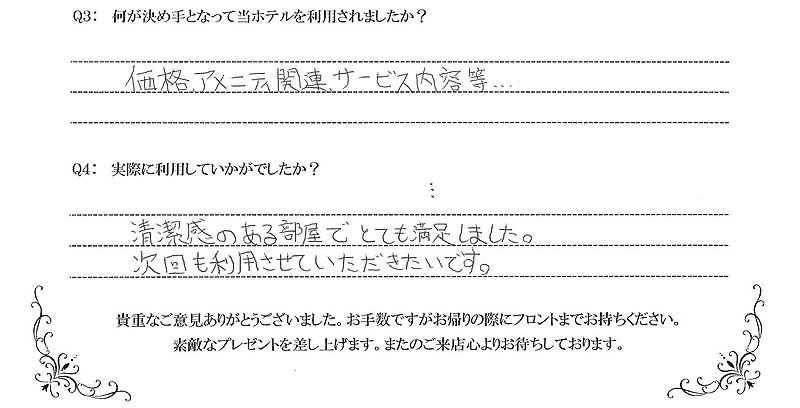 Q3: 何が決め手となって当ホテルを利用されましたか？
価格、アメニティ関連、サービス内容等...
Q4: 実際に利用していかがでしたか？
清潔感のある部屋でとても満足しました。
次回も利用させていただきたいです。
貴重なご意見ありがとうございました。お手数ですがお帰りの際にフロントまでお持ちください。
素敵なプレゼントを差し上げます。またのご来店心よりお待ちしております。